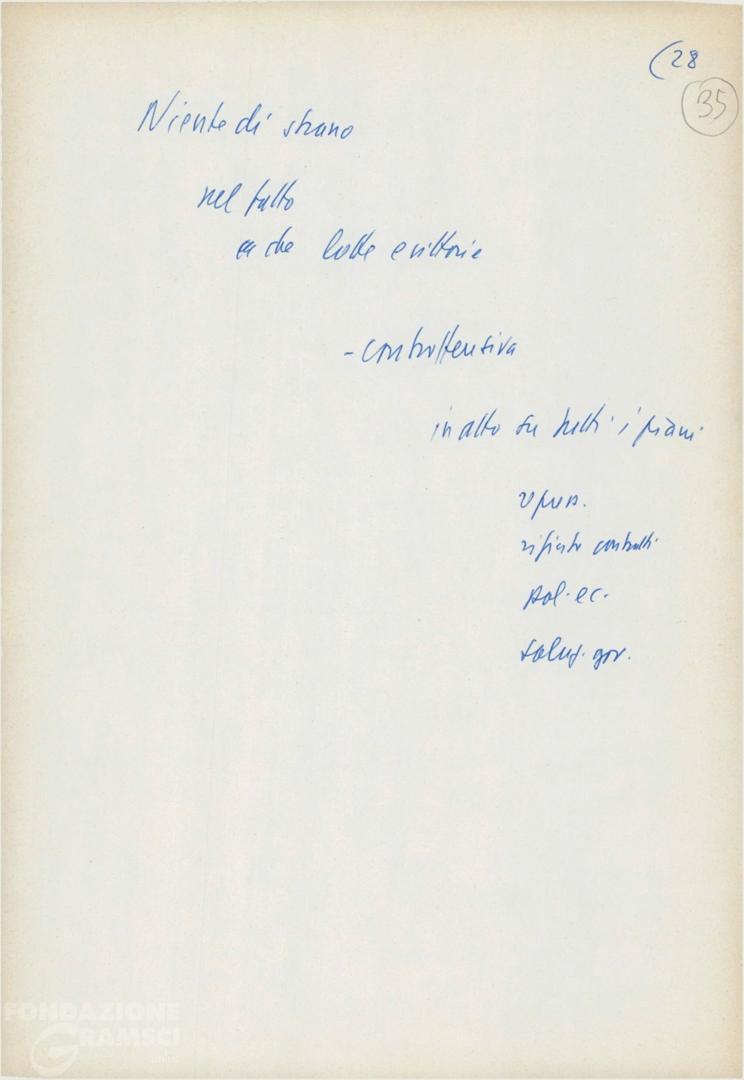 (28
35
Niente di strano
nel fatto
che lotte e vittorie
- controffensiva
in atto su tutti i piani
repress.
rifiuto contratti
pol. ec.
soluz. gov.
FONDAZIONE
GRAMSCI